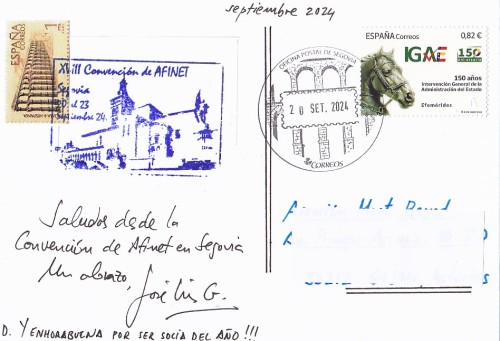 septiembre 2024
ESPAÑA
CORREOS
1
XVIII Convención de AFINET
Segovia
20 al 23
septiembre 24
OFICINA POSTAL DE SEGOVIA
20 SET. 2024
CORREOS
ESPAÑA Correos
0,82 €
IGAE
150
150 años
Intervención General de la
Administración del Estado
Efemérides
Saludos desde la
Convención de Afinet en Segovia
Un abrazo,
José Luis G.
D. Y ENHORABUENA POR SER SOCIA DEL AÑO!!!